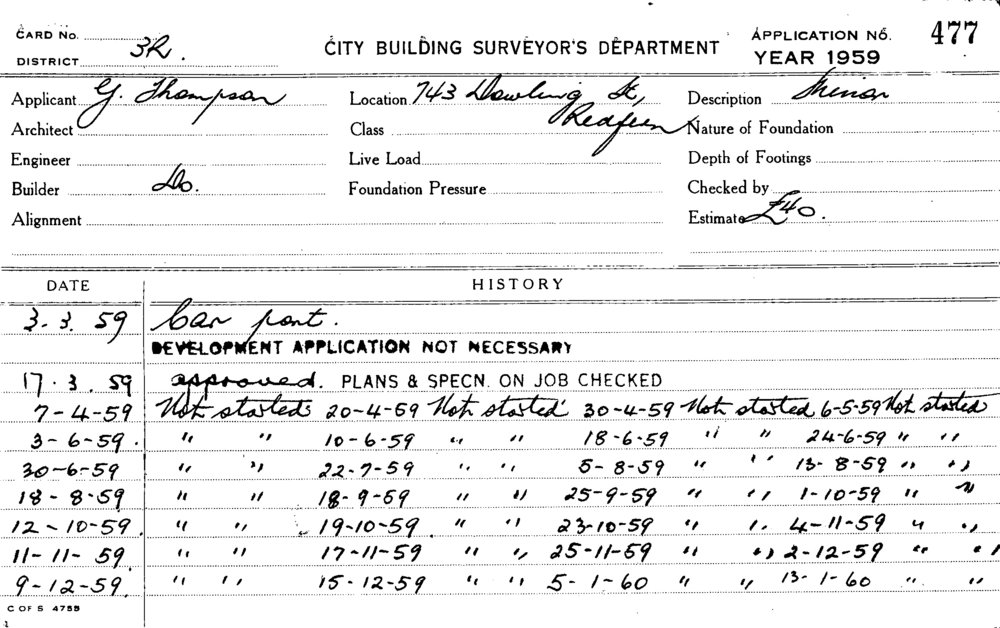 CARD No. CITY BUILDING SURVEYOR'S DEPARTMENT APPLICATION No. 477
DISTRICT 3R. YEAR 1959
Applicant G. Thompson Location 743 Dowling St, Description Minor
Architect Class Redfern Nature of Foundation
Engineer Live Load Depth of Footings
Builder Do. Foundation Pressure Checked by
Alignment Estimate £40.
DATE HISTORY
3. 3. 59 Car port.
DEVELOPMENT APPLICATION NOT NECESSARY
17. 3. 59 approved. PLANS & SPECN. ON JOB CHECKED
7-4-59 Not started 20-4-59 Not started 30-4-59 Not started 6-5-59 Not started
3-6-59. " " 10-6-59 " " 18-6-59 " " 24-6-59 " "
30-6-59 " " 22-7-59 " " 5-8-59 " " 13-8-59 " "
18-8-59 " " 18-9-59 " " 25-9-59 " " 1-10-59 " "
12-10-59 " " 19-10-59 " " 23-10-59 " " 4-11-59 " "
11-11-59. " " 17-11-59 " " 25-11-59 " " 2-12-59 " "
9-12-59. " " 15-12-59 " " 5-1-60 " " 13-1-60 " "
C OF S 4755